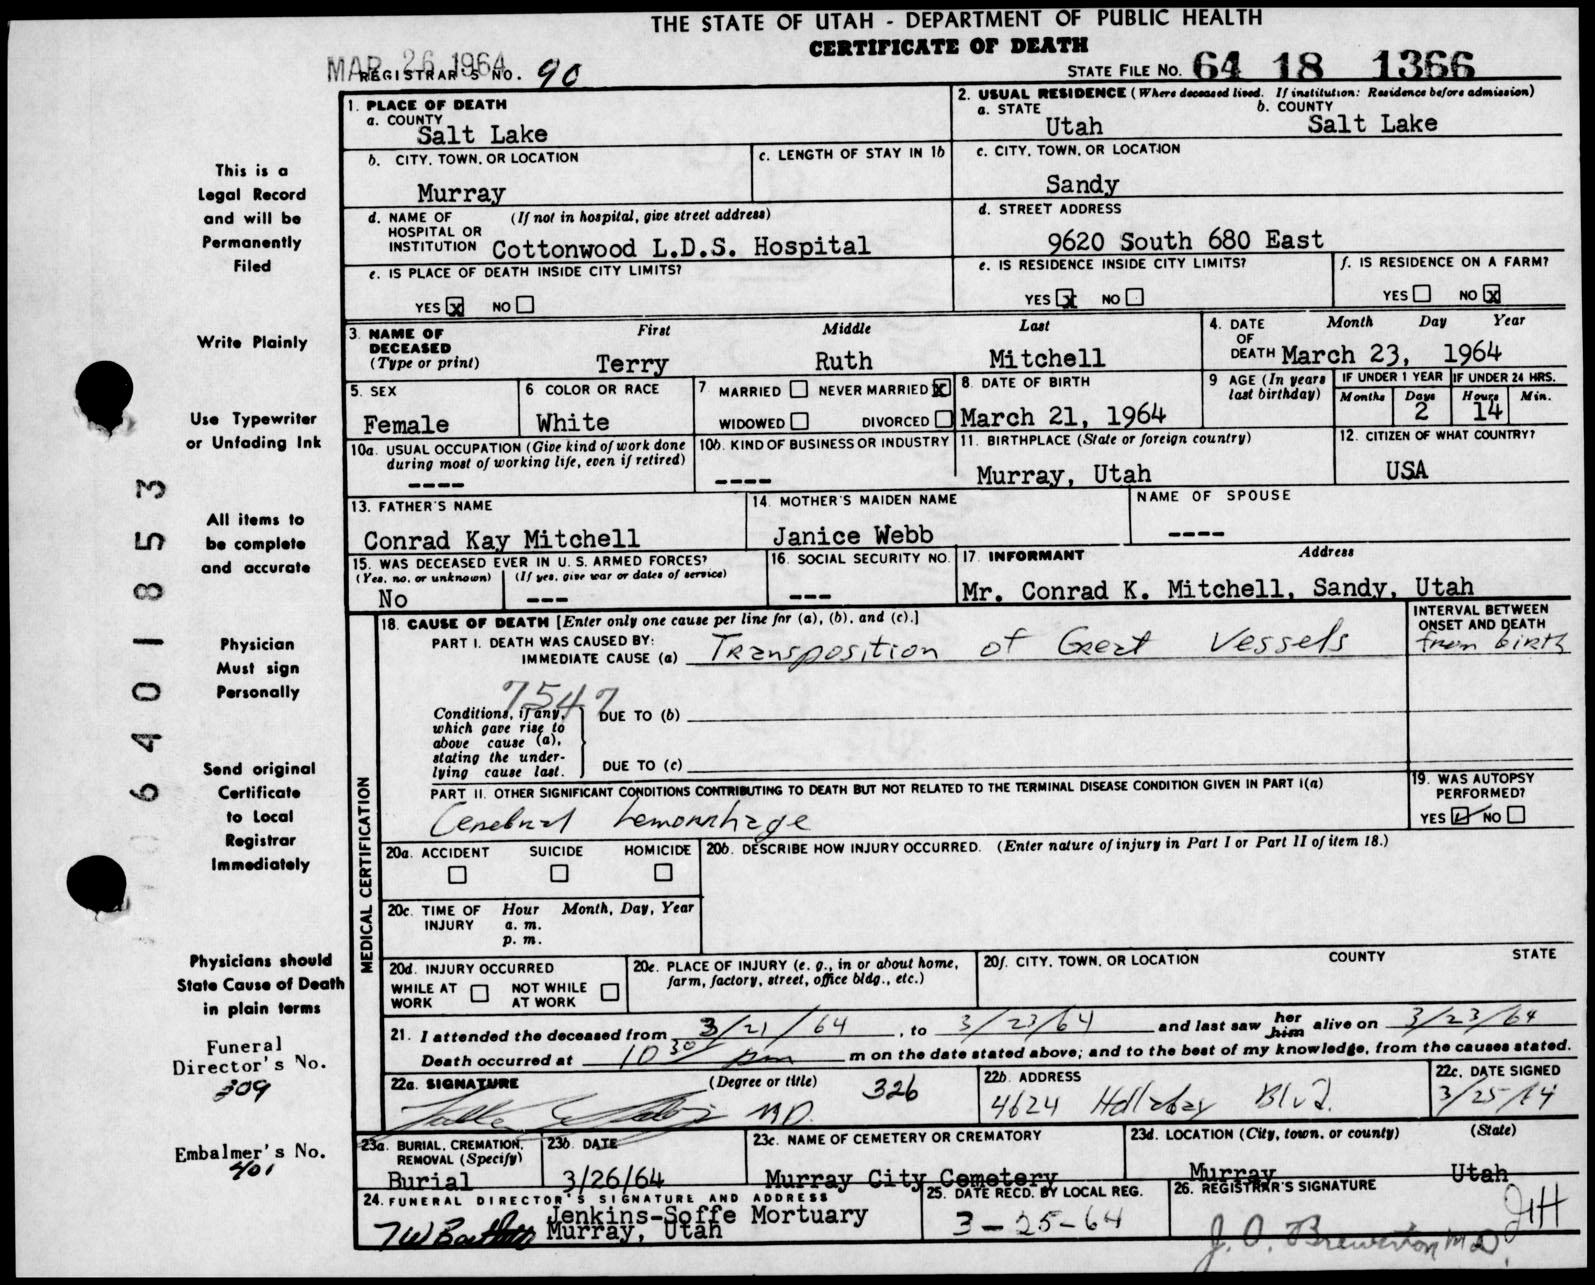 THE STATE OF UTAH - DEPARTMENT OF PUBLIC HEALTH
CERTIFICATE OF DEATH
MAR 26 1964
REGISTRAR'S NO. 90
STATE FILE NO. 64 18 1366
1. PLACE OF DEATH
a. COUNTY
Salt Lake
2. USUAL RESIDENCE (Where deceased lived. If institution: Residence before admission)
a. STATE b. COUNTY
Utah Salt Lake
b. CITY, TOWN, OR LOCATION
Murray
c. LENGTH OF STAY IN 1b
c. CITY, TOWN, OR LOCATION
Sandy
d. NAME OF HOSPITAL OR INSTITUTION (If not in hospital, give street address)
Cottonwood L.D.S. Hospital
d. STREET ADDRESS
9620 South 680 East
e. IS PLACE OF DEATH INSIDE CITY LIMITS?
YES x NO
e. IS RESIDENCE INSIDE CITY LIMITS?
YES x NO
f. IS RESIDENCE ON A FARM?
YES NO x
3. NAME OF DECEASED (Type or print)
First Middle Last
Terry Ruth Mitchell
4. DATE OF DEATH Month Day Year
March 23, 1964
5. SEX
Female
6 COLOR OR RACE
White
7. MARRIED NEVER MARRIED x
WIDOWED DIVORCED
8. DATE OF BIRTH
March 21, 1964
9 AGE (In years last birthday)
IF UNDER 1 YEAR
Months Days
2
IF UNDER 24 HRS.
Hours Min.
14
10a. USUAL OCCUPATION (Give kind of work done during most of working life, even if retired)
----
10b. KIND OF BUSINESS OR INDUSTRY
----
11. BIRTHPLACE (State or foreign country)
Murray, Utah
12. CITIZEN OF WHAT COUNTRY?
USA
13. FATHER'S NAME
Conrad Kay Mitchell
14. MOTHER'S MAIDEN NAME
Janice Webb
NAME OF SPOUSE
----
15. WAS DECEASED EVER IN U. S. ARMED FORCES?
(Yes, no, or unknown) (If yes, give war or dates of service)
No ---
16. SOCIAL SECURITY NO.
---
17. INFORMANT Address
Mr. Conrad K. Mitchell, Sandy, Utah
18. CAUSE OF DEATH [Enter only one cause per line for (a), (b), and (c).]
INTERVAL BETWEEN ONSET AND DEATH
PART I. DEATH WAS CAUSED BY:
IMMEDIATE CAUSE (a) Transposition of Great Vessels
from birth
7547
Conditions, if any, which gave rise to above cause (a), stating the underlying cause last.
DUE TO (b)
DUE TO (c)
PART II. OTHER SIGNIFICANT CONDITIONS CONTRIBUTING TO DEATH BUT NOT RELATED TO THE TERMINAL DISEASE CONDITION GIVEN IN PART I(a)
Cerebral hemorrhage
19. WAS AUTOPSY PERFORMED?
YES NO
MEDICAL CERTIFICATION
20a. ACCIDENT SUICIDE HOMICIDE
20b. DESCRIBE HOW INJURY OCCURRED. (Enter nature of injury in Part I or Part II of item 18.)
20c. TIME OF INJURY Hour Month, Day, Year
a. m.
p. m.
20d. INJURY OCCURRED
WHILE AT WORK NOT WHILE AT WORK
20e. PLACE OF INJURY (e. g., in or about home, farm, factory, street, office bldg., etc.)
20f. CITY, TOWN, OR LOCATION COUNTY STATE
21. I attended the deceased from 3/21/64, to 3/23/64 and last saw her him alive on 3/23/64
Death occurred at 10 30 pm m on the date stated above; and to the best of my knowledge, from the causes stated.
22a. SIGNATURE (Degree or title)
M.D. 326
22b. ADDRESS
4624 Holladay Blvd.
22c. DATE SIGNED
3/25/64
23a. BURIAL, CREMATION, REMOVAL (Specify)
Burial
23b. DATE
3/26/64
23c. NAME OF CEMETERY OR CREMATORY
Murray City Cemetery
23d. LOCATION (City, town, or county) (State)
Murray Utah
24. FUNERAL DIRECTOR'S SIGNATURE AND ADDRESS
Jenkins-Soffe Mortuary
Murray, Utah
25. DATE RECD. BY LOCAL REG.
3-25-64
26. REGISTRAR'S SIGNATURE
This is a
Legal Record
and will be
Permanently
Filed
Write Plainly
Use Typewriter
or Unfading Ink
All items to
be complete
and accurate
Physician
Must sign
Personally
Send original
Certificate
to Local
Registrar
Immediately
Physicians should
State Cause of Death
in plain terms
Funeral
Director's No.
309
Embalmer's No.
401
6401853